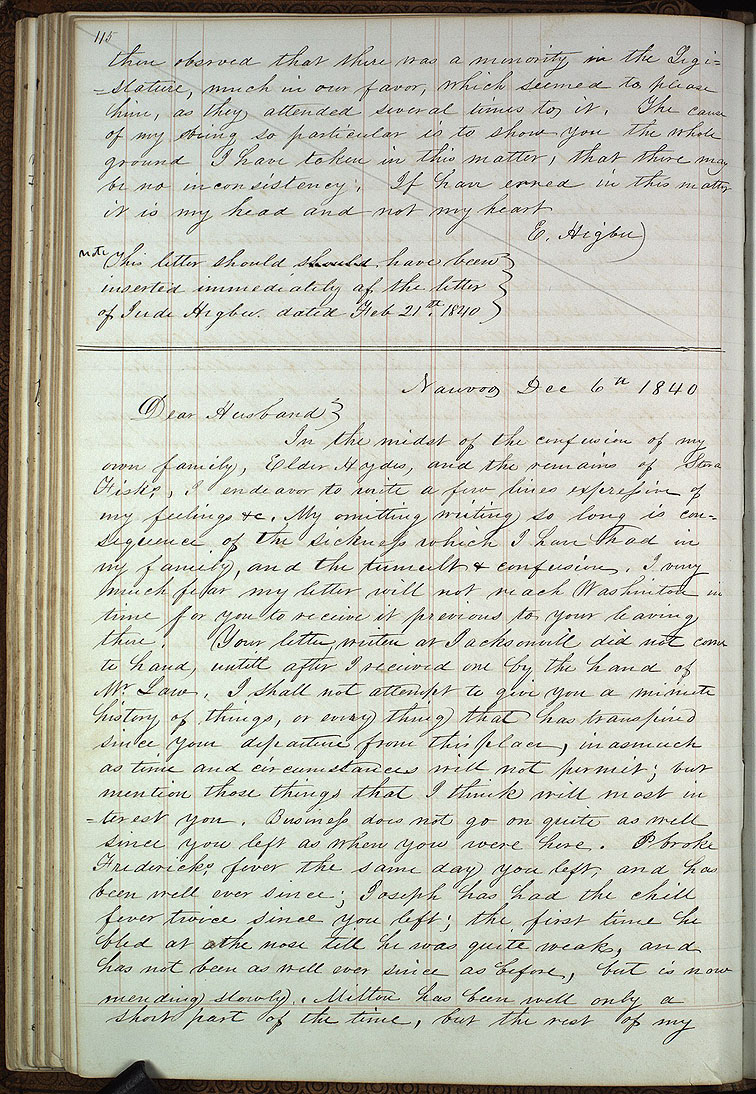 115
then obsrved that there was a minority in the Legi=
=slature, much in our favor, which seemed to please
him, as they attended several times to it. The cause
of my being so particular is to show you the whole
ground I have taken in this matter, that there may
be no inconsistency. If have erred in this matter
it is my head and not my heart
E. Higbee)
note This letter should should have been }
inserted immediately af the letter }
of Jude Higbee. dated Feb 21th. 1840 }
Nauvoo Dec 6th 1840
Dear Husband }
In the midst of the confusion of my
own family, Elder Hydes, and the remains of
Fisks, I endeavor to write a few lines expressive of
my feelings &c. My omitting writing so long is con=
sequence of the sickness which I have had in
my family, and the tumult & confusion. I very
much fear my letter will not reach Washinton in
time for you to receive it previous to your leaving
there. Your letter, writen at Jacksonvill did not come
to hand, untill after I received one by the hand of
Mr Law. I shall not attempt to give you a minute
history of things, or every thing that has transpired
since your departure from this place, inasmuch
as time and circumstances will not permit; but
mention those things that I think will most in
=terest you. Business does not go on quite as well
since you left as when you were here. I broke
Fredericks fever the same day you left, and has
been well ever since; Joseph has had the chill
fever twice since you left; the first time he
bled at the nose till he was quite weak, and
has not been as well ever since as before, but is now
mending slowly. Milton has been well only a
short part of the time, but the rest of my